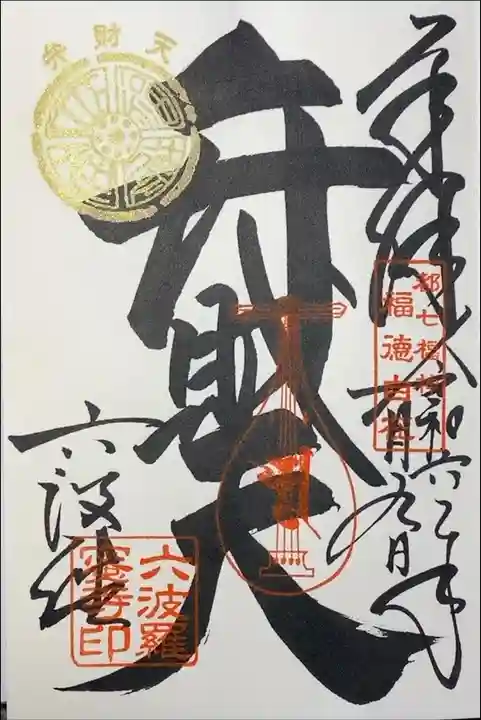 奉拝
令和六年
一月九日
都七福神
福徳自在
弁財天
天財弁
六波羅
六波羅
蜜寺印